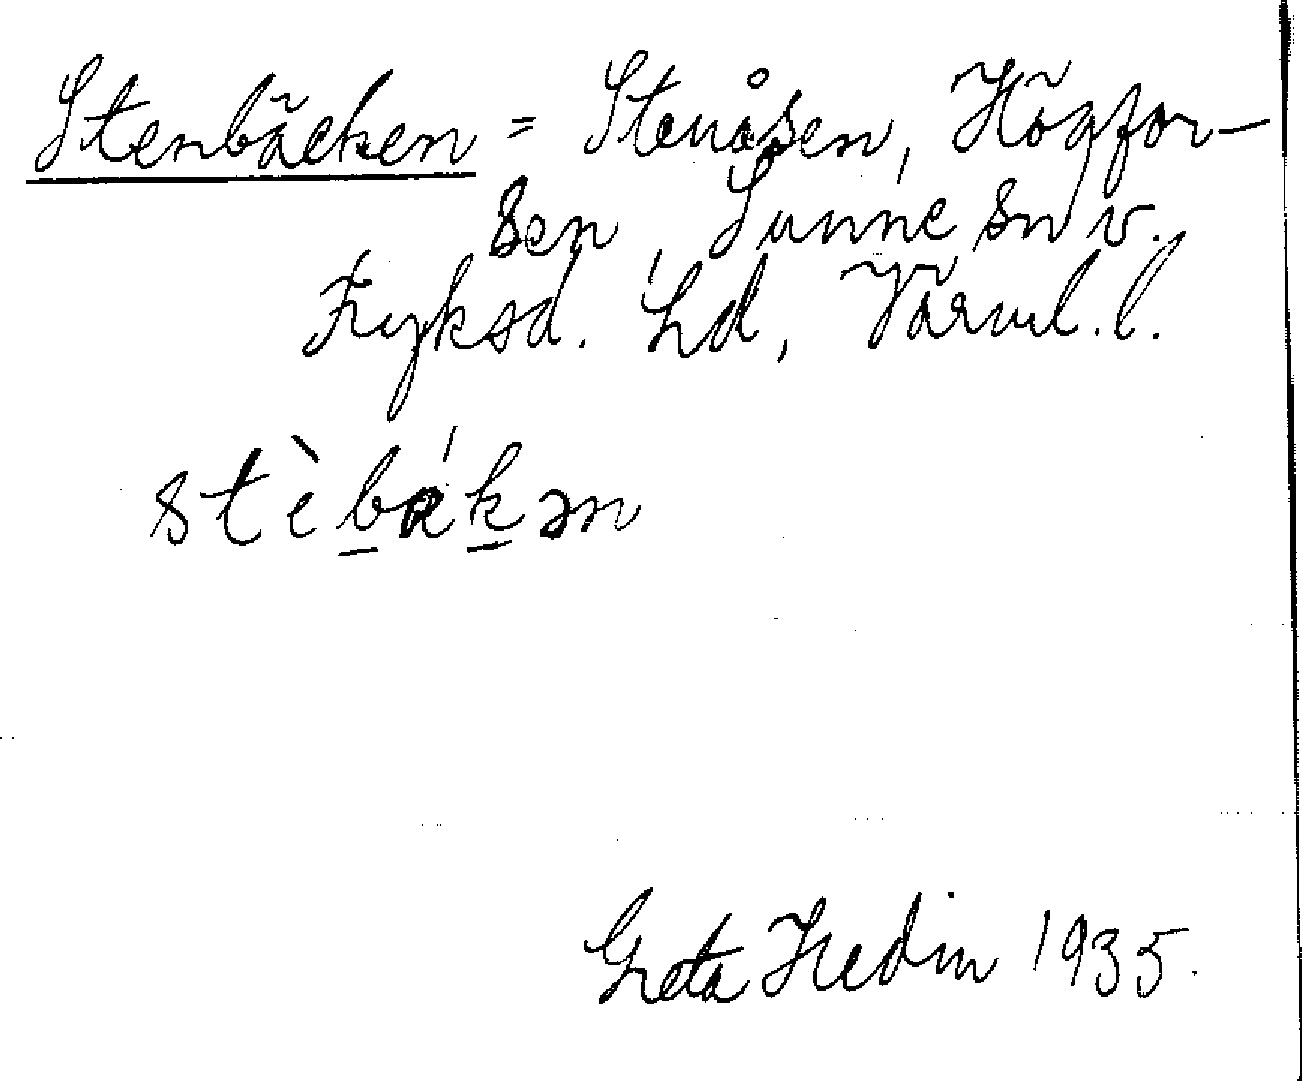 Stenbäcken = Stenåsen, Högfor-
sen, Sunne sn v.
Fryksd. hd, Värml. l.
stèbákən
Greta Hedin 1935.